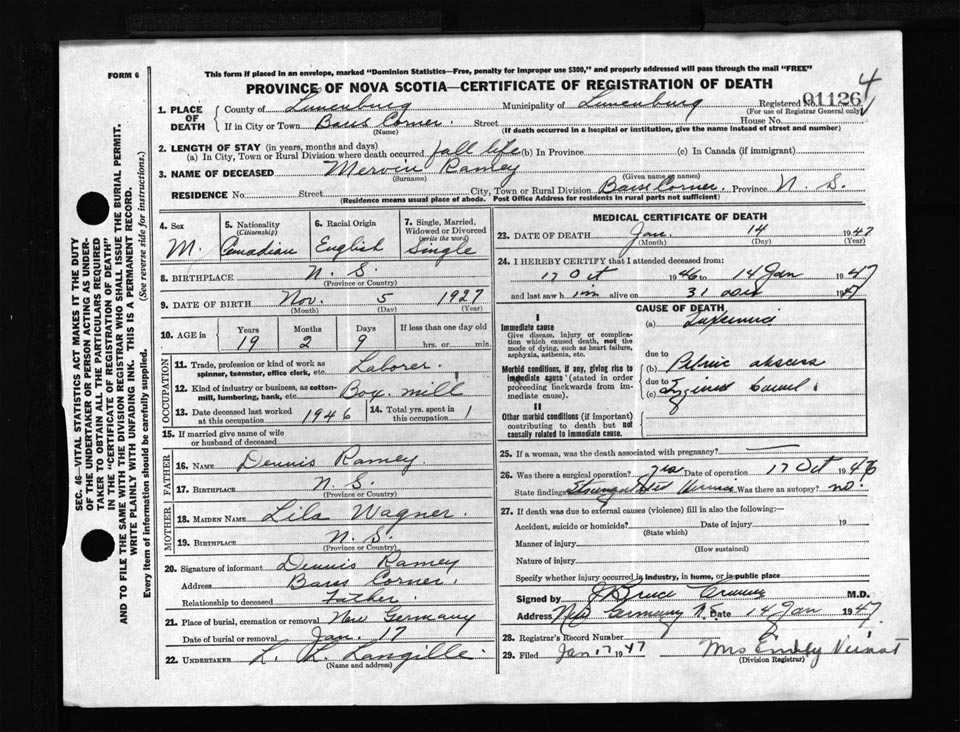 FORM 6
This form if placed in an envelope, marked "Dominion Statistics—Free, penalty for improper use $300," and properly addressed will pass through the mail "FREE"
PROVINCE OF NOVA SCOTIA—CERTIFICATE OF REGISTRATION OF DEATH
4
1. PLACE OF DEATH
County of Lunenburg Municipality of Lunenburg Registered No. 01126
(For use of Registrar General only)
If in City or Town Barss Corner. Street House No.
(Name) (If death occurred in a hospital or institution, give the name instead of street and number)
2. LENGTH OF STAY (in years, months and days)
(a) In City, Town or Rural Division where death occurred all life (b) In Province (c) In Canada (if immigrant)
3. NAME OF DECEASED Mervin Ramey
(Surname) (Given name or names)
RESIDENCE No. Street City, Town or Rural Division Barss Corner. Province N. S.
(Residence means usual place of abode. Post Office Address for residents in rural parts not sufficient)
4. Sex 5. Nationality (Citizenship) 6. Racial Origin 7. Single, Married, Widowed or Divorced (write the word)
M. Canadian English Single
8. BIRTHPLACE N. S.
(Province or Country)
9. DATE OF BIRTH Nov. 5 1927
(Month) (Day) (Year)
10. AGE in Years Months Days If less than one day old
19 2 9 hrs. or min.
OCCUPATION
11. Trade, profession or kind of work as spinner, teamster, office clerk, etc. Laborer.
12. Kind of industry or business, as cotton-mill, lumbering, bank, etc. Box mill
13. Date deceased last worked at this occupation 1946 14. Total yrs. spent in this occupation 1
15. If married give name of wife or husband of deceased
FATHER
16. NAME Dennis Ramey.
17. BIRTHPLACE N. S.
(Province or Country)
MOTHER
18. MAIDEN NAME Lila Wagner.
19. BIRTHPLACE N. S.
(Province or Country)
20. Signature of informant Dennis Ramey
Address Barss Corner.
Relationship to deceased Father.
21. Place of burial, cremation or removal New Germany
Date of burial or removal Jan. 17
22. UNDERTAKER L. L. Langille.
(Name and address)
MEDICAL CERTIFICATE OF DEATH
23. DATE OF DEATH Jan. 14 1947
(Month) (Day) (Year)
24. I HEREBY CERTIFY that I attended deceased from:
17 Oct 1946 to 14 Jan 1947
and last saw him alive on 31 1947
CAUSE OF DEATH
I
Immediate cause
Give disease, injury or complication which caused death, not the mode of dying, such as heart failure, asphyxia, asthenia, etc.
(a)
due to
Morbid conditions, if any, giving rise to immediate cause (stated in order proceeding backwards from immediate cause).
(b) Pelvic abscess
due to
(c)
II
Other morbid conditions (if important) contributing to death but not causally related to immediate cause.
25. If a woman, was the death associated with pregnancy?
26. Was there a surgical operation? yes Date of operation 17 Oct 1946
State findings Strangulated Hernia Was there an autopsy? no.
27. If death was due to external causes (violence) fill in also the following:—
Accident, suicide or homicide? Date of injury 19
(State which)
Manner of injury
(How sustained)
Nature of injury
Specify whether injury occurred in industry, in home, or in public place
Signed by J Bruce M.D.
Address New Germany N.S. Date 14 Jan 1947
28. Registrar's Record Number
29. Filed Jan 17 1947 Mrs Emily
(Division Registrar)
SEC. 46—VITAL STATISTICS ACT MAKES IT THE DUTY
OF THE UNDERTAKER OR PERSON ACTING AS UNDER-
TAKER TO OBTAIN ALL THE PARTICULARS REQUIRED
IN THE "CERTIFICATE OF REGISTRATION OF DEATH"
AND TO FILE THE SAME WITH THE DIVISION REGISTRAR WHO SHALL ISSUE THE BURIAL PERMIT.
WRITE PLAINLY WITH UNFADING INK. THIS IS A PERMANENT RECORD.
Every item of information should be carefully supplied. (See reverse side for instructions.)